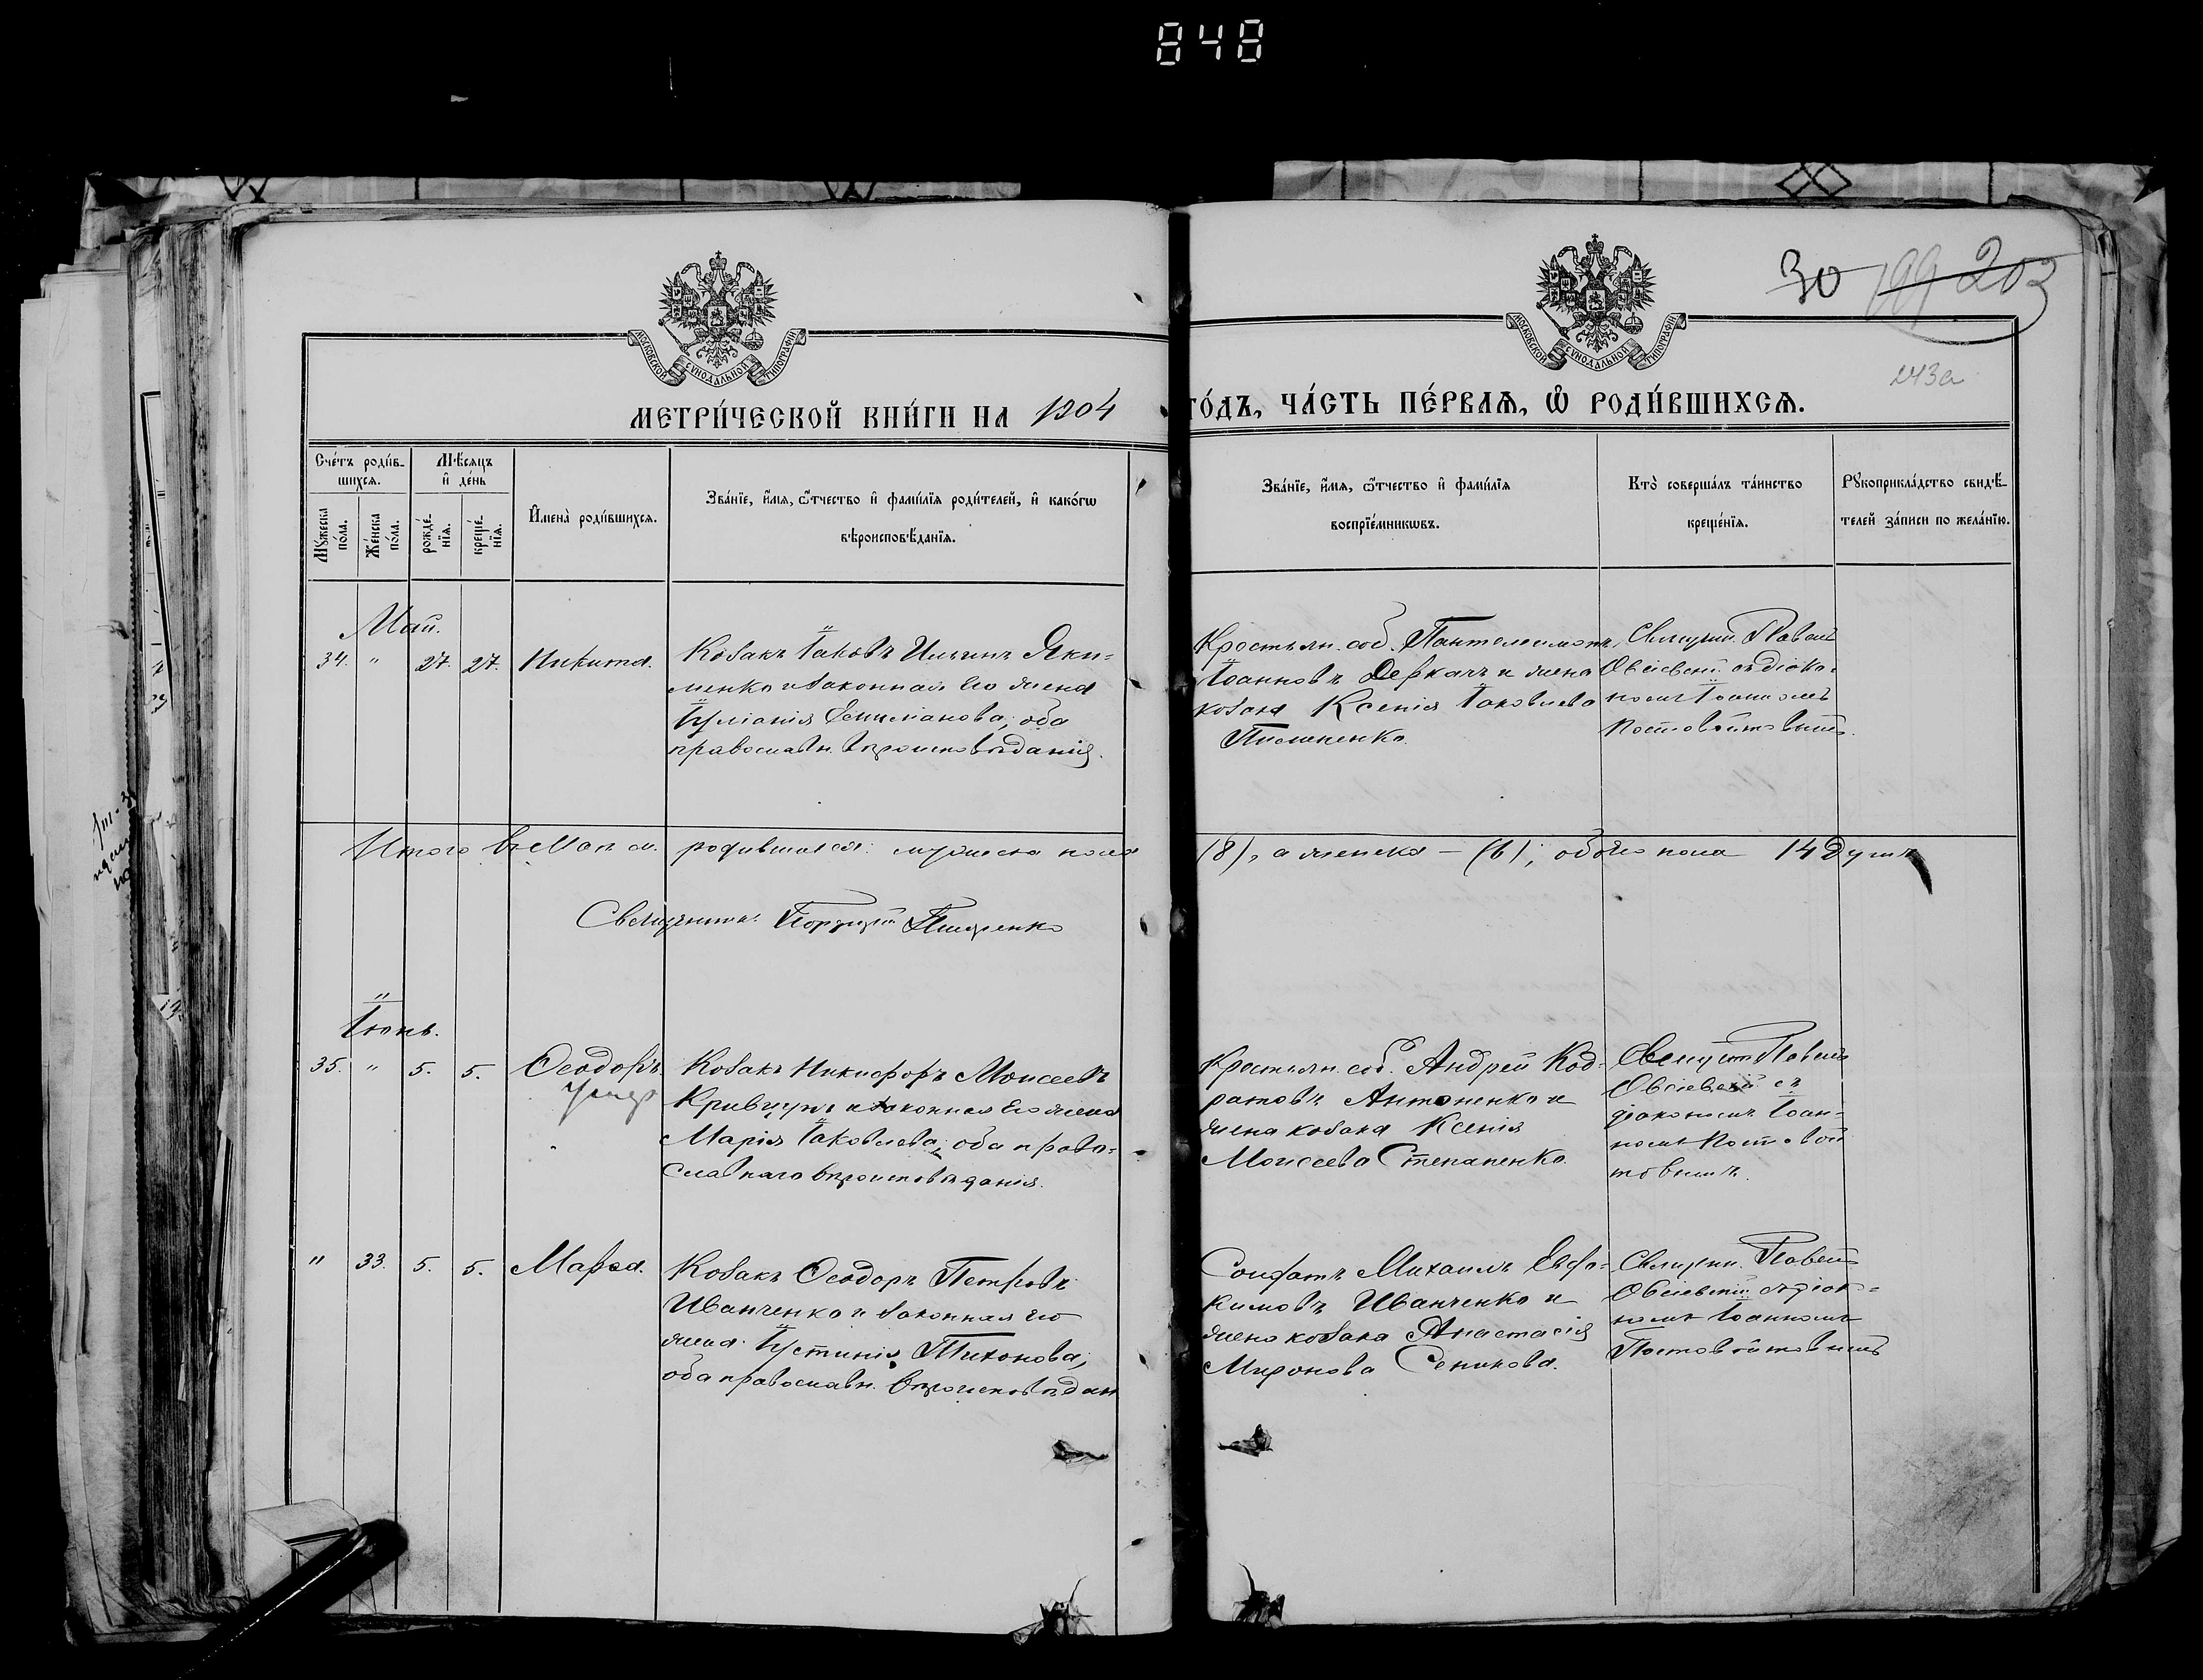 848
МОСКОВСКОЙ СУНОДАЛЬНОЙ ТИПОГРАФІИ
МОСКОВСКОЙ СУНОДАЛЬНОЙ ТИПОГРАФІИ
30 199 203
243а
МЕТРИ́ЧЕСКОЙ КНИ́ГИ НА 1904
ГО́ДЪ, ЧА́СТЬ ПЕ́РВАѦ, Ѡ РОДИ́ВШИХСѦ.
Сче́тъ роди́в-
шихсѧ.
Мꙋ́жеска по́ла.
Же́нска по́ла.
Мѣ́сѧцъ
и҆ де́нь
рожде́-
нїѧ.
креще́-
нїѧ.
И҆мена̀ роди́вшихсѧ.
Зва́нїе, и҆́мѧ, ѻ҆́тчество и҆ фами́лїѧ роди́телей, и҆ како́гѡ
вѣроисповѣ́данїѧ.
Зва́нїе, и҆́мѧ, ѻ҆́тчество и҆ фами́лїѧ
воспрїе́мникѡвъ.
Кто̀ соверша́лъ та́инство
креще́нїѧ.
Рꙋкоприкла́дство свидѣ́-
телей за́писи по жела́нїю.
Май.
34. " 27. 27. Никита.
Козакъ Іаковъ Ильинъ Яки-
менко и законная его жена
Іуліанія Емиліанова; оба
православн. вѣроисповѣданія.
Крестьян. соб. Пантелеимонъ
Іоанновъ Деркачъ и жена
козака Ксенія Іаковлева
Священ. Павелъ
Овсіевскій съ діако-
номъ Іоанномъ
Постовойтовымъ.
Итого въ Маѣ м. родившихся: мужеска пола
(8), а женска – (6); обоего пола 14 душъ
Священникъ
Іюнь.
35. " 5. 5. Ѳеодоръ.
умер
Козакъ Никифоръ Моисеевъ
Кривцунъ и законная его жена
Марія Іаковлева; оба право-
славнаго вѣроисповѣданія.
Крестьян. соб. Андрей Код-
ратовъ Антоненко и
жена козака Ксенія
Моисеева Степаненко.
Священ. Павелъ
Овсіевскій съ
діакономъ Іоан-
номъ Постовой
товымъ.
" 33. 5. 5. Марѳа.
Козакъ Ѳеодоръ Петровъ
Иванченко и законная его
жена Іустинія Тихонова;
оба православн. вѣроисповѣдан
Солдатъ Михаилъ Евфи-
мовъ Иванченко и
жена козака Анастасія
Миронова Сеникова.
Священ. Павелъ
Овсіевскій съ діак-
номъ Іоанномъ
Постовойтовымъ